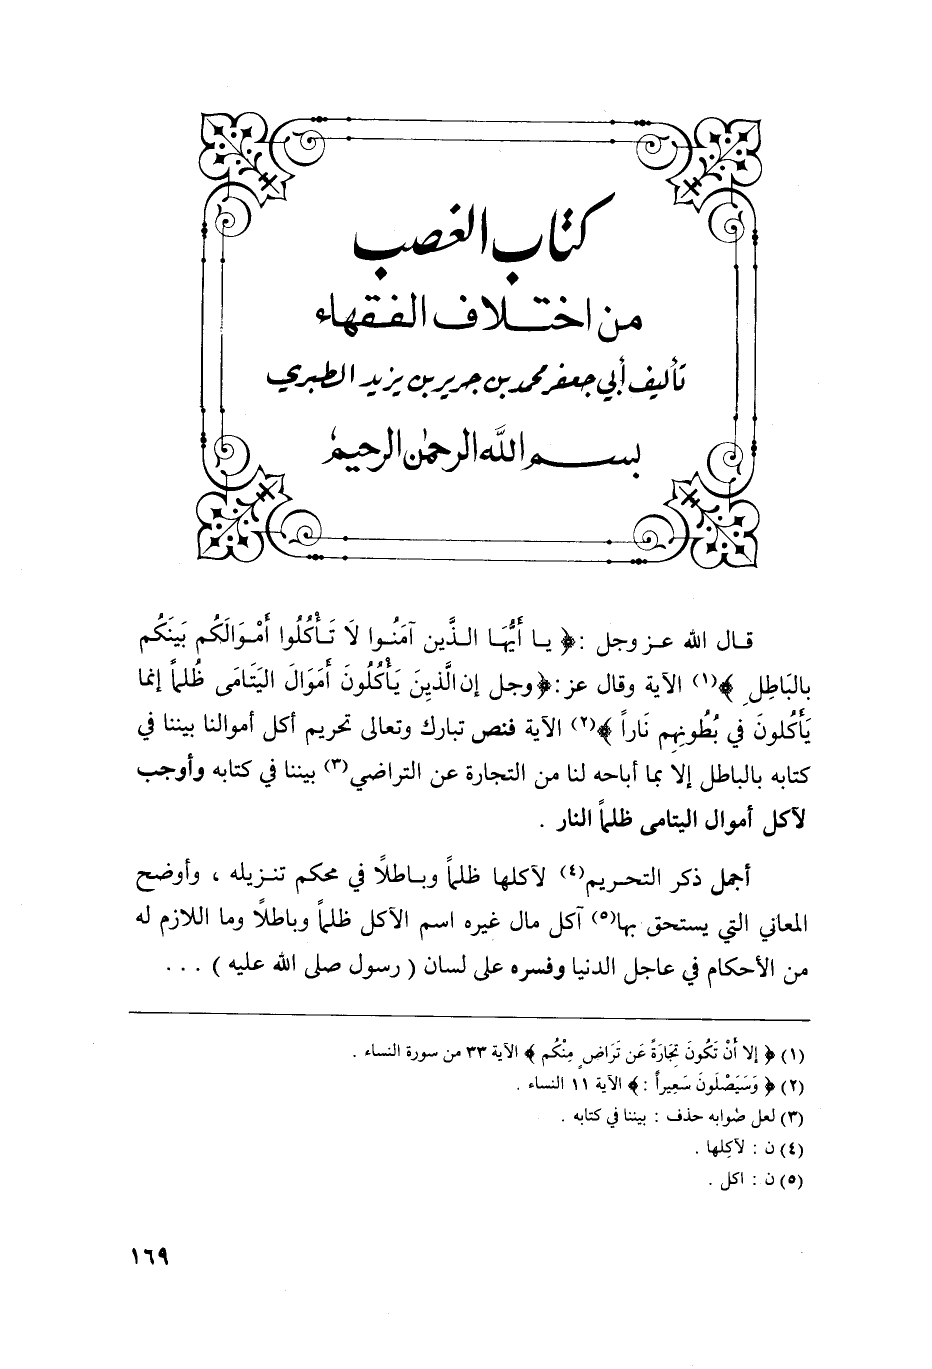 كتاب الغصب
من اختلاف الفقهاء
تأليف أبي جعفر محمد بن جرير بن يزيد الطبري
بسم الله الرحمٰن الرحيم
قال الله عز وجل :﴿ يا أَيُّهَا الذَّين آمَنُوا لَا تَأْكُلُوا أَمْوَالَكُم بَينَكُم
بالبَاطِلِ ﴾(١) الآية وقال عز :﴿وجل إن الَّذِينَ يَأْكُلُونَ أَمَوَالَ اليَتَامَى ظُلماً إنما
يَأْكُلونَ في بُطُونهِم نَاراً ﴾(٢) الآية فنص تبارك وتعالى تحريم أكل أموالنا بيننا في
كتابه بالباطل إلا بما أباحه لنا من التجارة عن التراضي(٣) بيننا في كتابه وأوجب
لآكل أموال اليتامى ظلماً النار .
أجمل ذكر التحريم(٤) لآكلها ظلماً وباطلاً في محكم تنزيله ، وأوضح
المعاني التي يستحق بها(٥) آكل مال غيره اسم الآكل ظلماً وباطلاً وما اللازم له
من الأحكام في عاجل الدنيا وفسره على لسان ( رسول صلى الله عليه ) . . .
(١) ﴿ إلا أَنْ تَكُونَ تِجَارَةً عَن تَرَاضٍ مِنْكُم ﴾ الآية ٣٣ من سورة النساء .
(٢) ﴿ وَسَيَصْلَونَ سَعِيراً :﴾ الآية ١١ النساء .
(٣) لعل صُوابه حذف : بيننا في كتابه .
(٤) ن : لآكِلها .
(٥) ن : اكل .
١٦٩